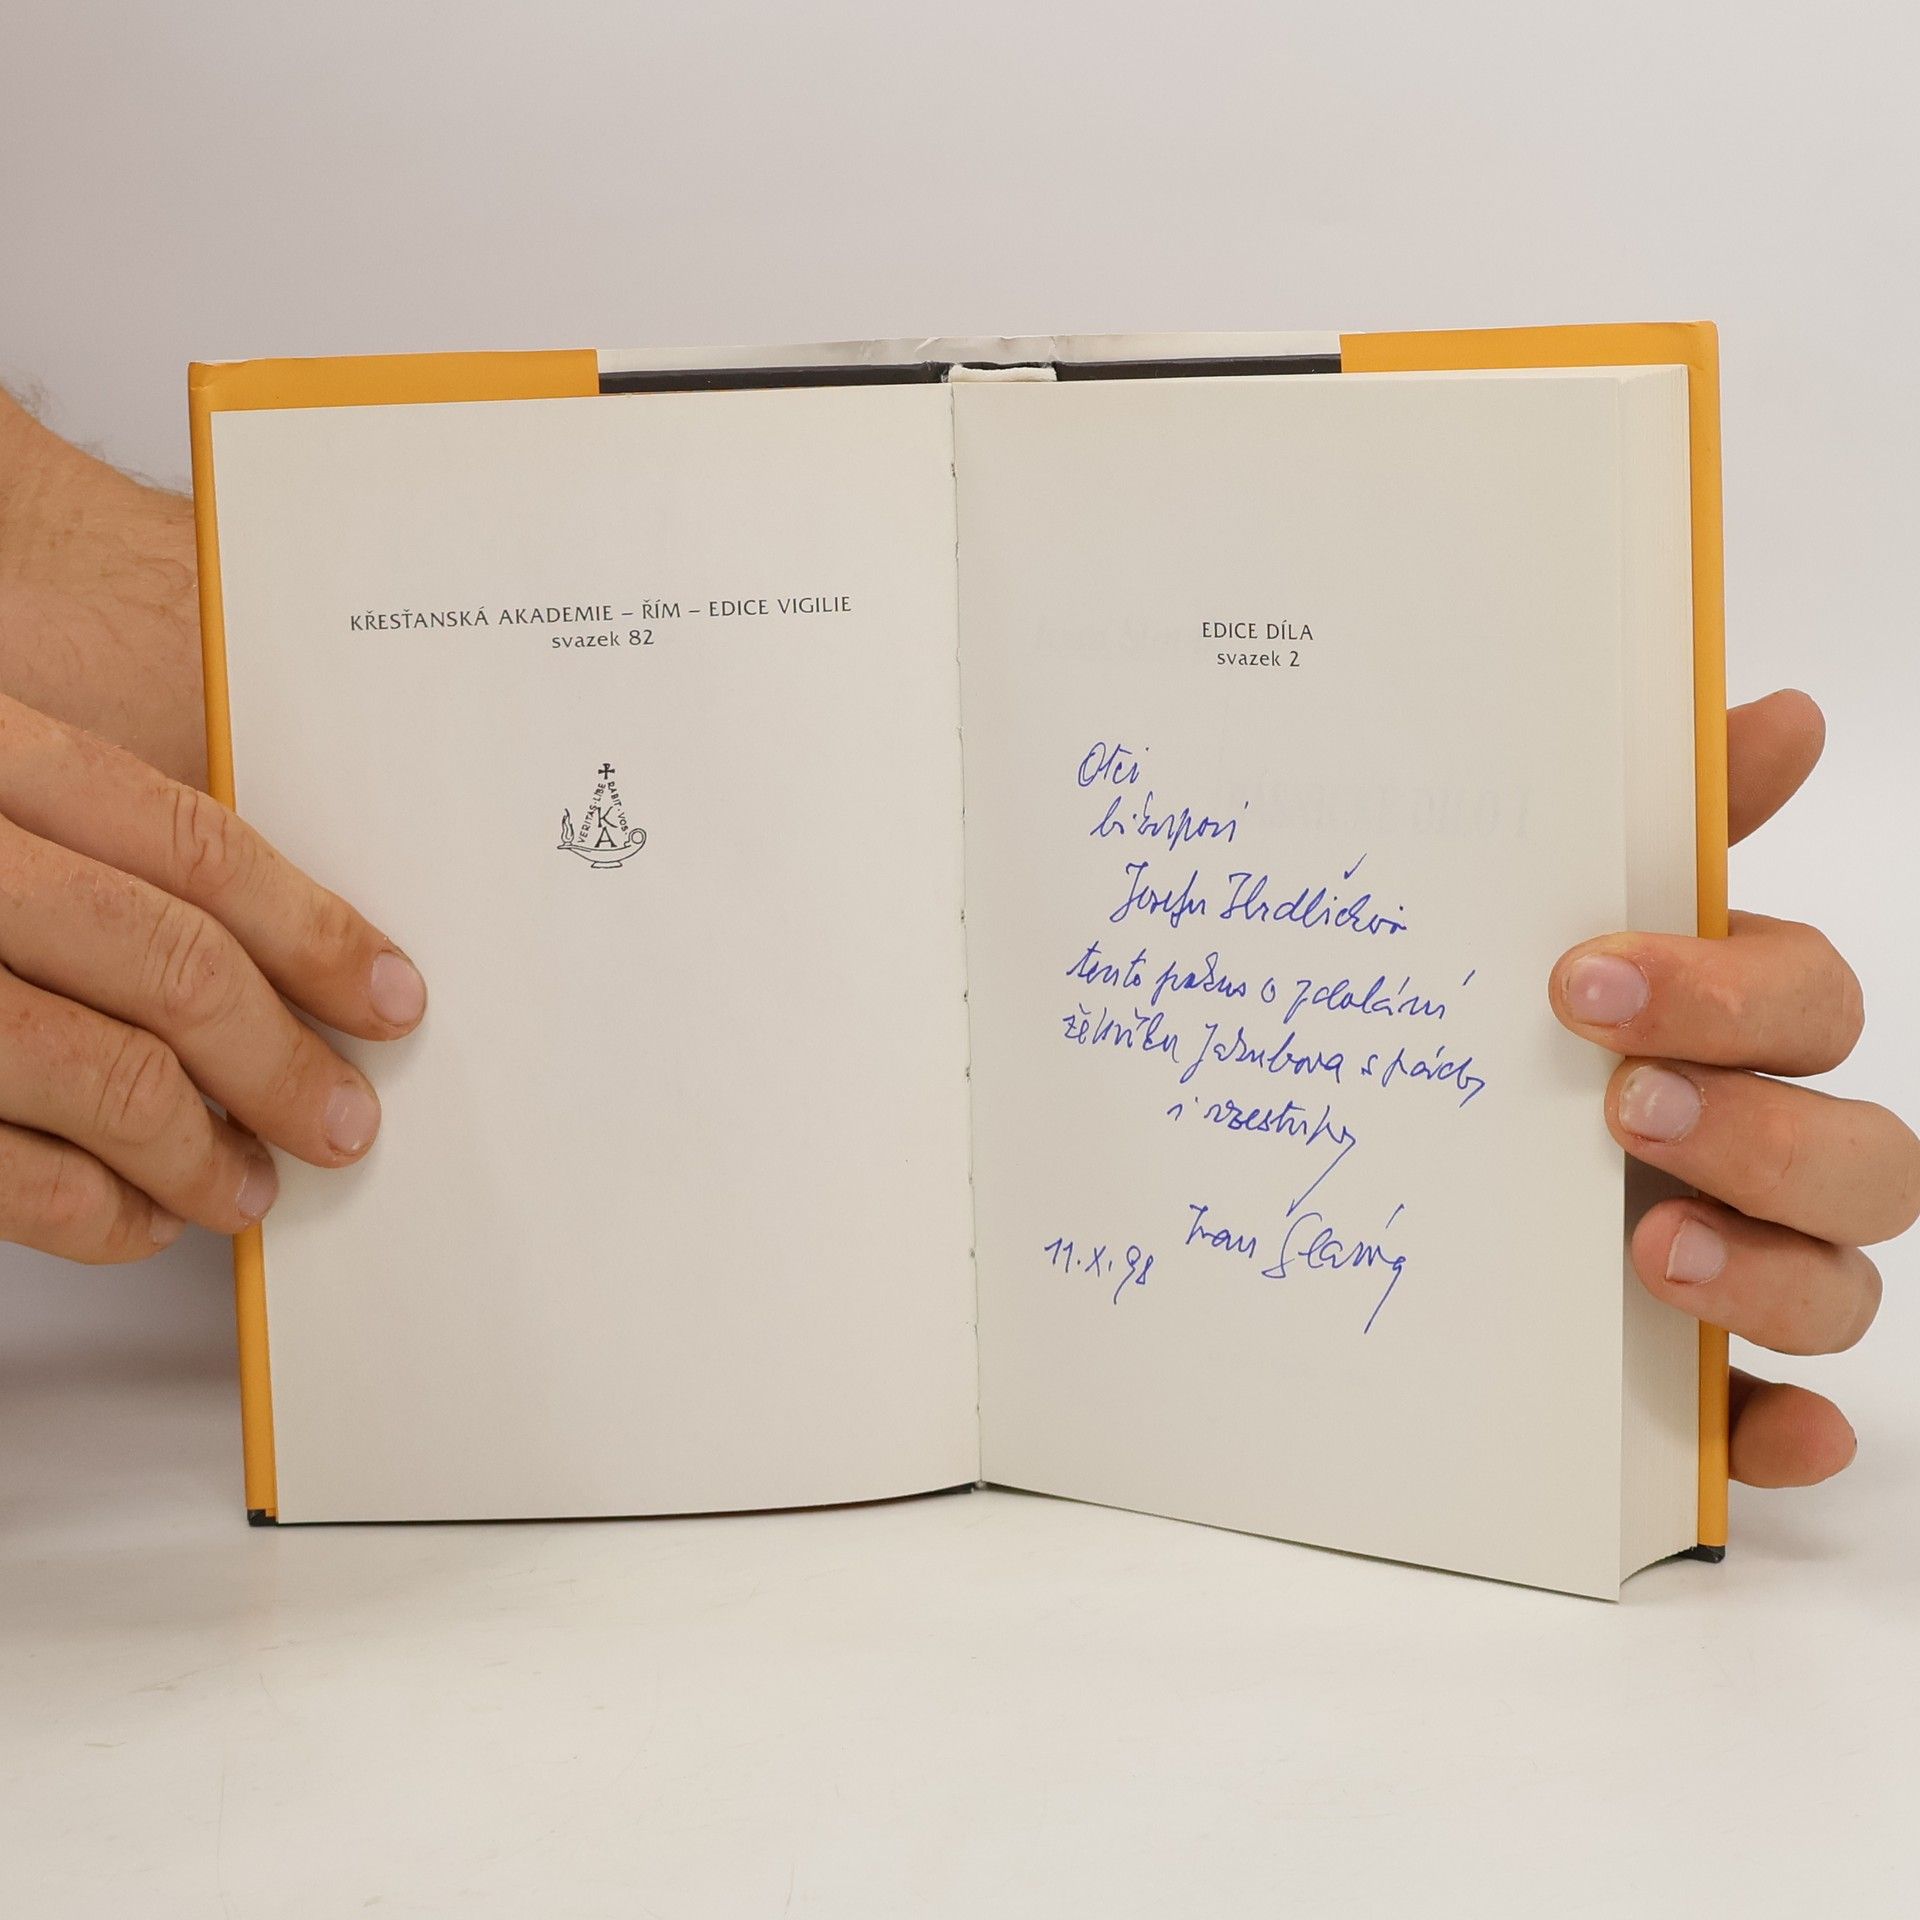 KŘESŤANSKÁ AKADEMIE – ŘÍM – EDICE VIGILIE
svazek 82
VERITAS · LIBERABIT · VOS
KA
EDICE DÍLA
svazek 2
Otci
biskupovi
Josefu Hrdličkovi
tento pokus o zdolání
žebříku Jakubova s pády
i vzestupy
Ivan Slavík
11. X. 98